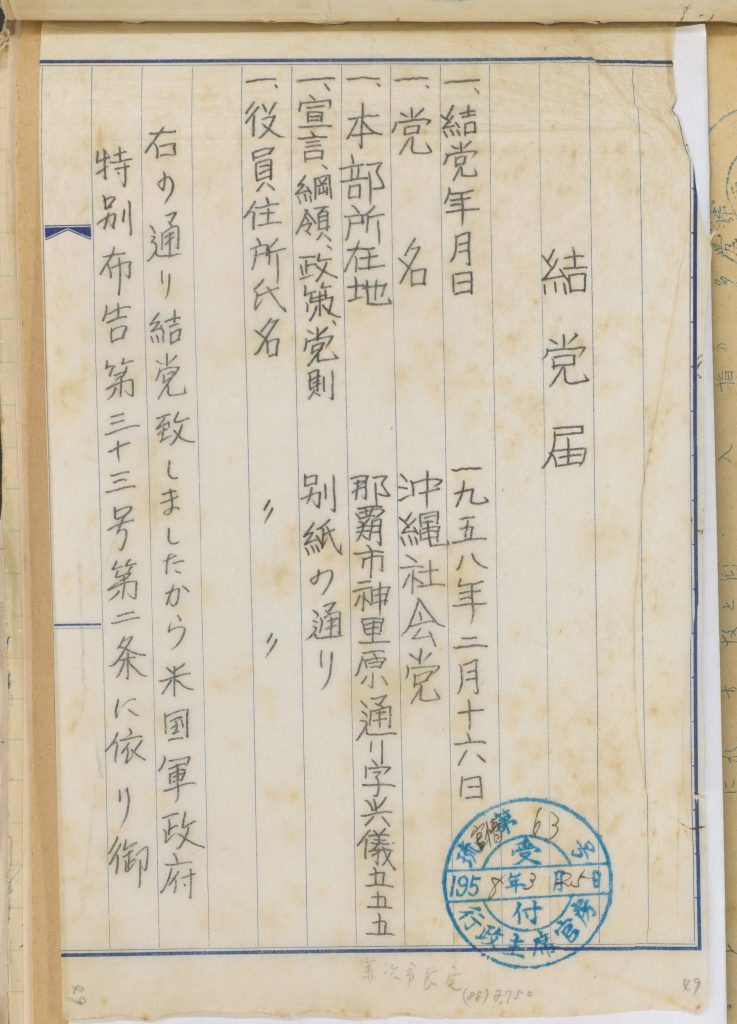 結党届
一、結党年月日 一九五八年二月十六日
一、党名 沖縄社会党
一、本部所在地 那覇市神里原通り字兴儀五五五
一、宣言、綱領、政策、党則 別紙の通り
一、役員住所氏名 〃 〃
右の通り結党致しましたから米国軍政府
特別布告第三十三号第二条に依り御
第63号
受付
1958年3月25日
行政主席官房
49
49